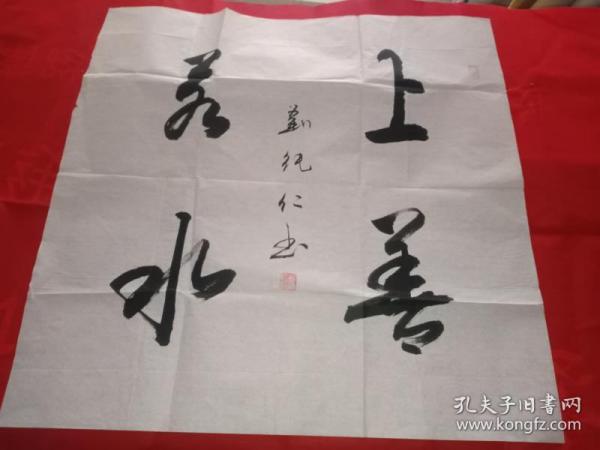 上善
若水
劉純仁书
孔夫子旧書网
www.kongfz.com